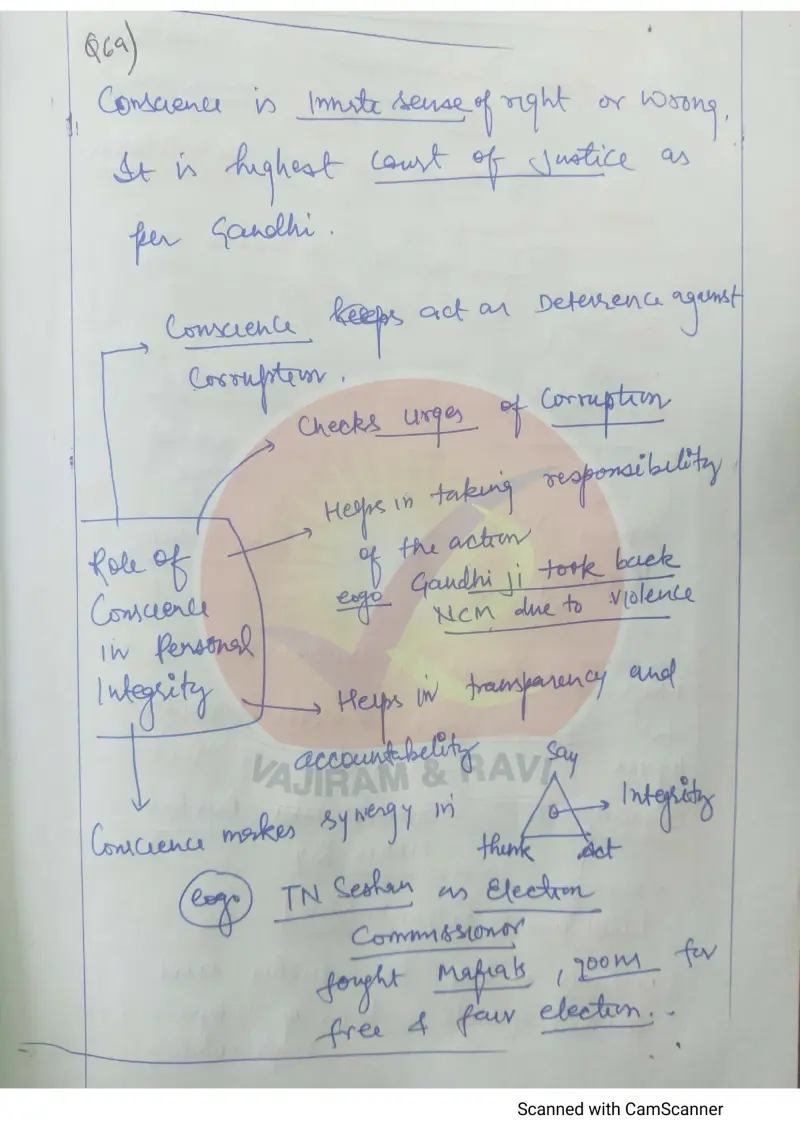 Q6a)
Conscience is innate sense of right or wrong.
It is highest court of justice as
per Gandhi.
Conscience keeps act as Deterrence against
Corruption.
Checks urges of Corruption
Helps in taking responsibility
of the action
e.g. Gandhi ji took back
NCM due to violence
Role of
Conscience
in Personal
Integrity
Helps in transparency and
accountability
VAJIRAM & RAVI
Conscience makes synergy in
Say
think
Act
Integrity
e.g. TN Seshan as Election
Commissionor
fought Mafia's, goons for
free & fair election.
Scanned with CamScanner